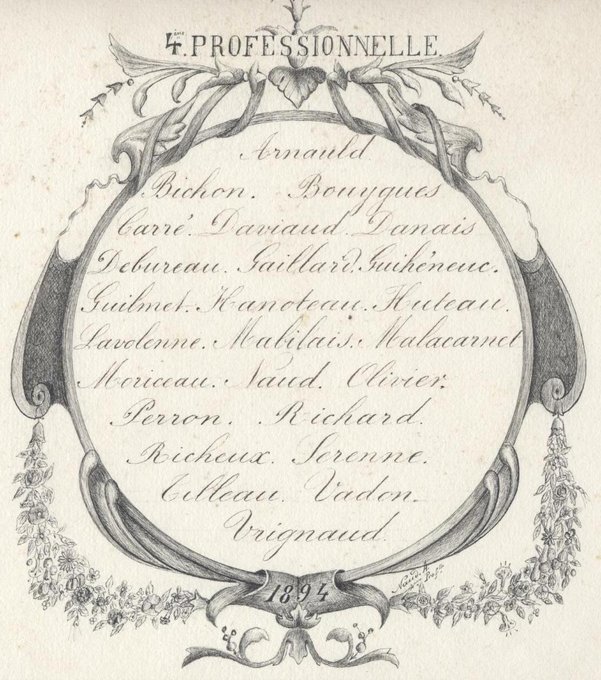 4ème PROFESSIONNELLE.
Arnauld.
Bichon. Bouygues
Carré. Daviaud. Danais
Debureau. Gaillard. Guihéneuc.
Guilmet. Hanoteau. Huteau.
Lavolenne. Mabilais. Malacarnet
Moriceau. Naud. Olivier.
Perron. Richard.
Richeux. Serenne.
Tilleau. Vadon.
Vrignaud.
1894